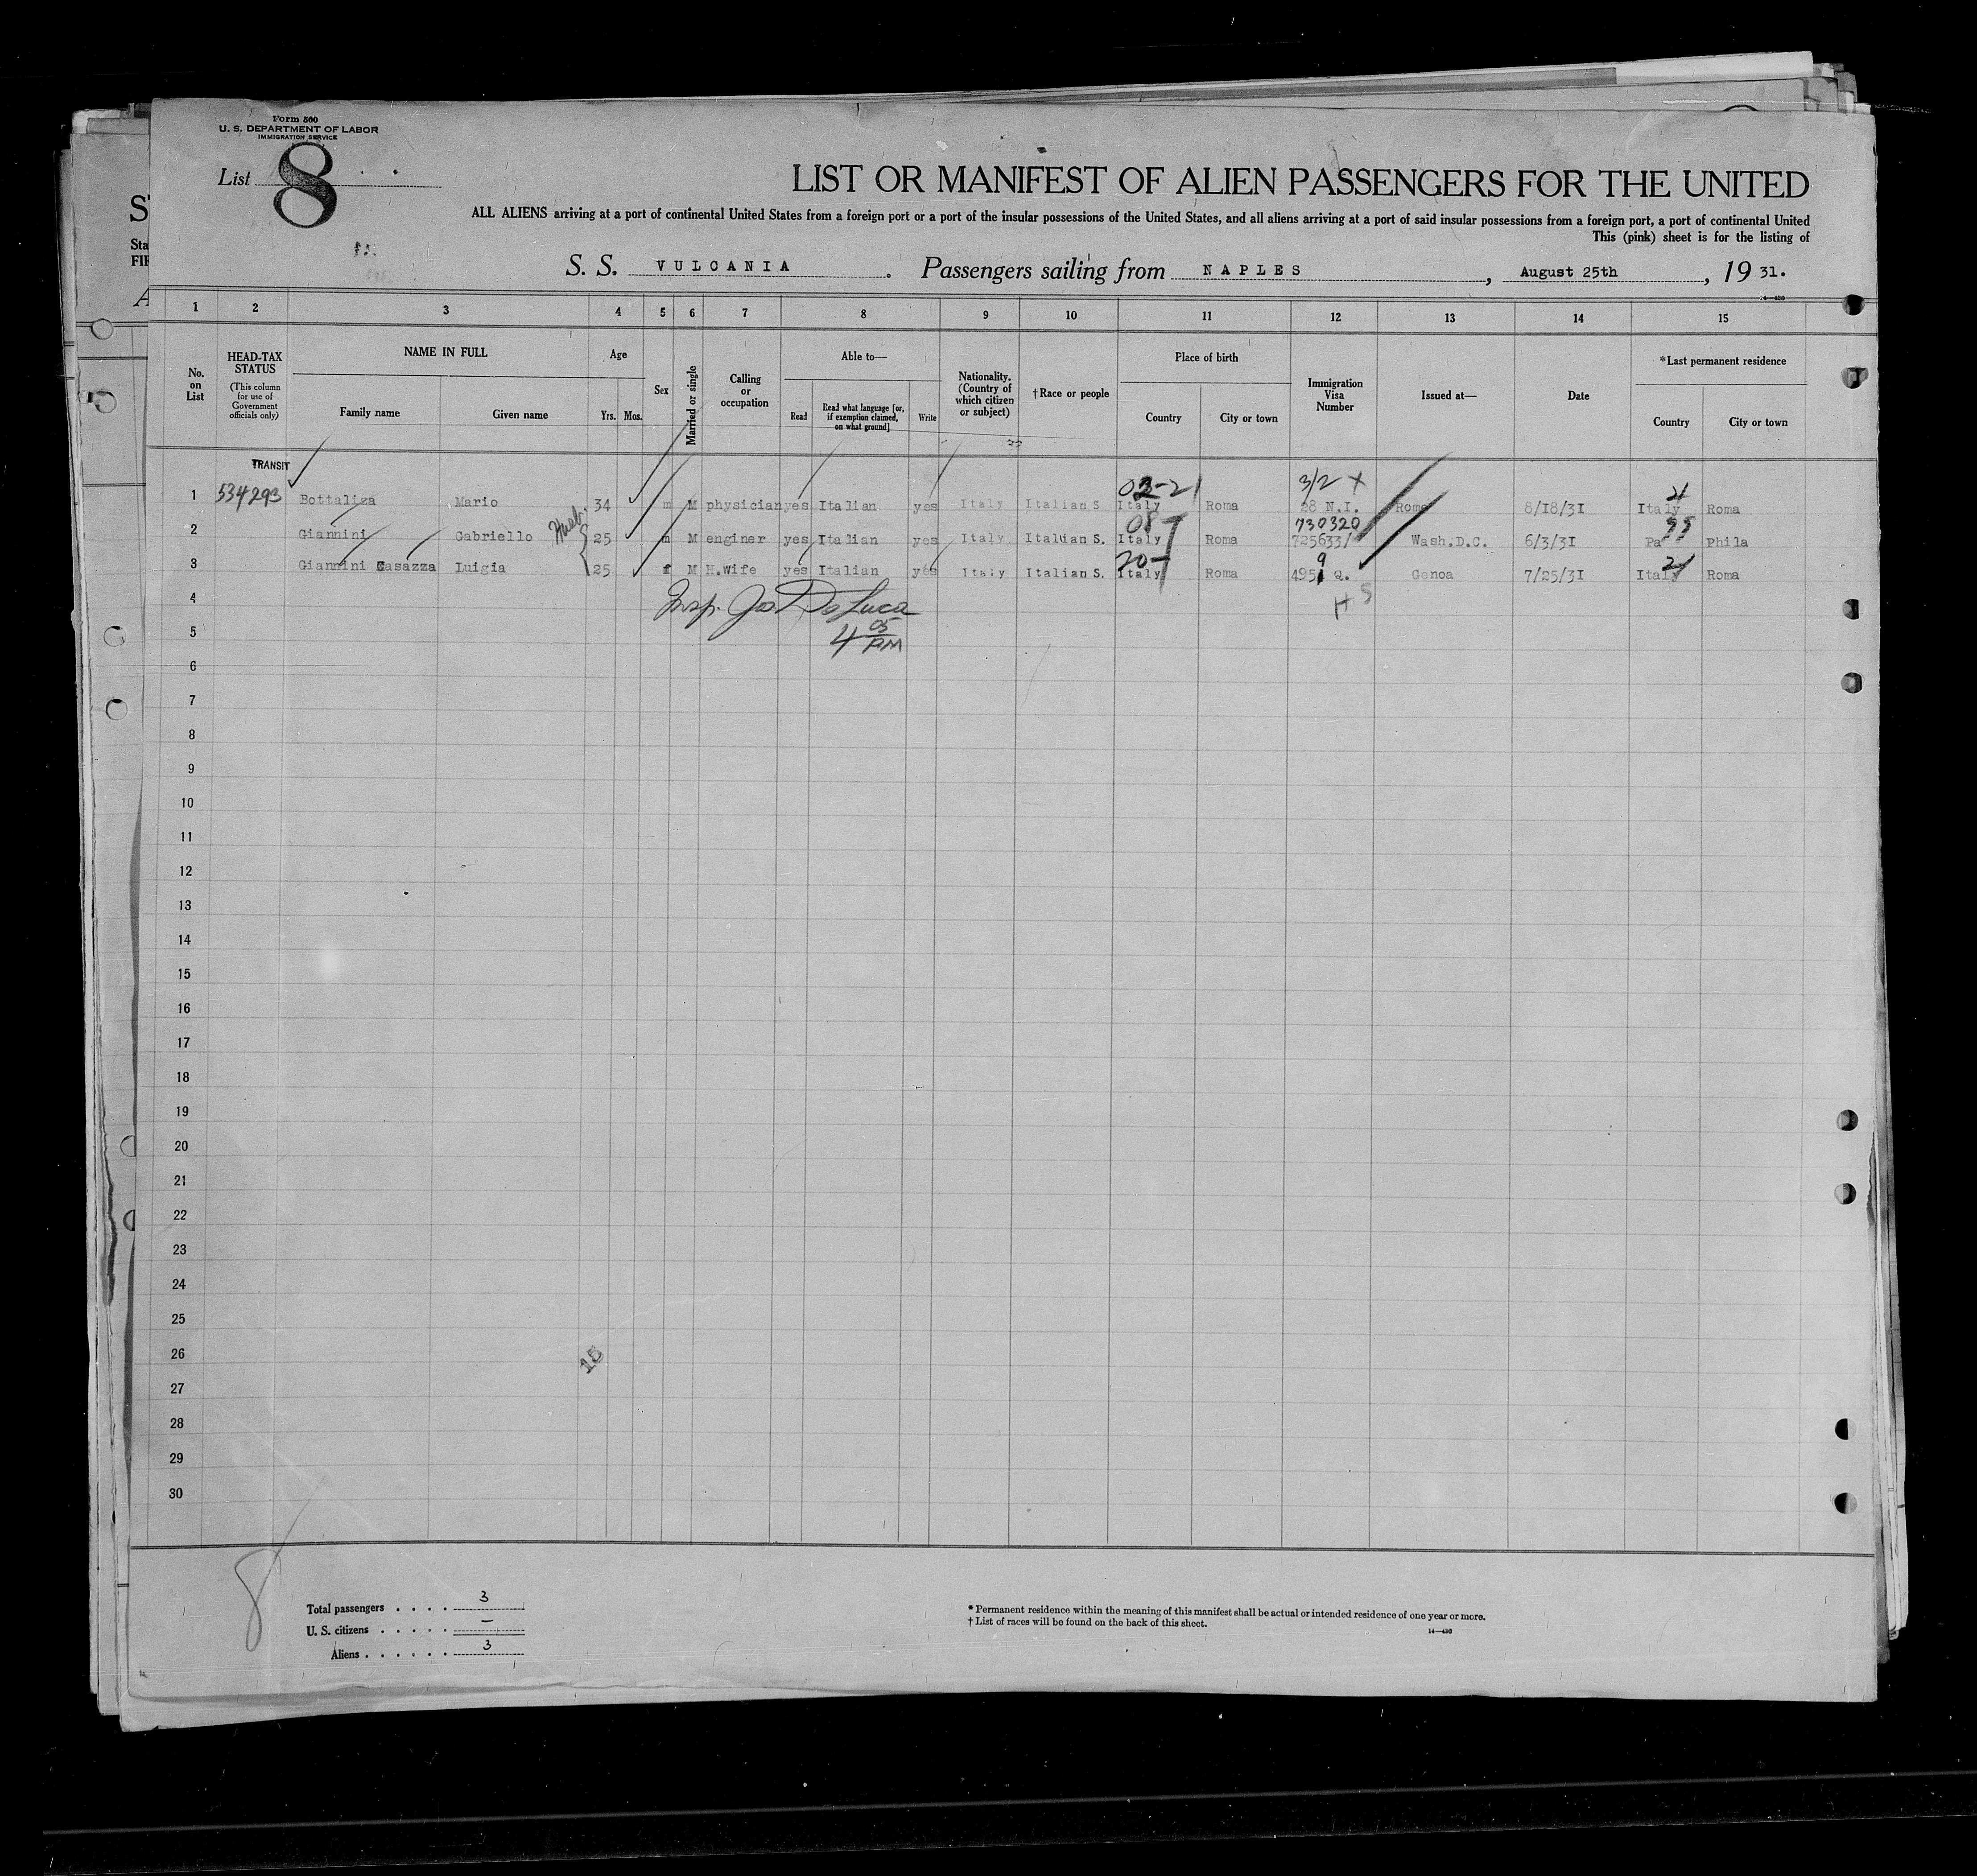 Form 500
U. S. DEPARTMENT OF LABOR
IMMIGRATION SERVICE
List 8
LIST OR MANIFEST OF ALIEN PASSENGERS FOR THE UNITED
ALL ALIENS arriving at a port of continental United States from a foreign port or a port of the insular possessions of the United States, and all aliens arriving at a port of said insular possessions from a foreign port, a port of continental United
This (pink) sheet is for the listing of
S. S. VULCANIA. Passengers sailing from NAPLES, August 25th, 19 31.
1 2 3 4 5 6 7 8 9 10 11 12 13 14 15
No. on List
HEAD-TAX STATUS
(This column for use of Government officials only)
NAME IN FULL
Family name Given name
Age
Yrs. Mos.
Sex
Married or single
Calling or occupation
Able to—
Read
Read what language [or, if exemption claimed, on what ground]
Write
Nationality. (Country of which citizen or subject)
†Race or people
Place of birth
Country City or town
Immigration Visa Number
Issued at—
Date
*Last permanent residence
Country City or town
TRANSIT
02-21 3/2 X 21
1 534293 Bottaliza Mario 34 m M physician yes Italian yes Italy Italian S Italy Roma 28 N.I. Roma 8/18/31 Italy Roma
730320
2 Giannini Gabriello Husb. 25 m M enginer yes Italian yes Italy Italian S. Italy Roma 725633 Wash.D.C. 6/3/31 Pa Phila
20- 9 21
3 Giannini Casazza Luigia 25 f M H.wife yes Italian yes Italy Italian S. Italy Roma 4951 Q. Genoa 7/25/31 Italy Roma
4 Insp. Jos DeLuca
5 4 05 PM
6
7
8
9
10
11
12
13
14
15
16
17
18
19
20
21
22
23
24
25
26
15
27
28
29
30
8
Total passengers . . . . 3
U. S. citizens . . . . . —
Aliens . . . . . . 3
* Permanent residence within the meaning of this manifest shall be actual or intended residence of one year or more.
† List of races will be found on the back of this sheet.
14—430